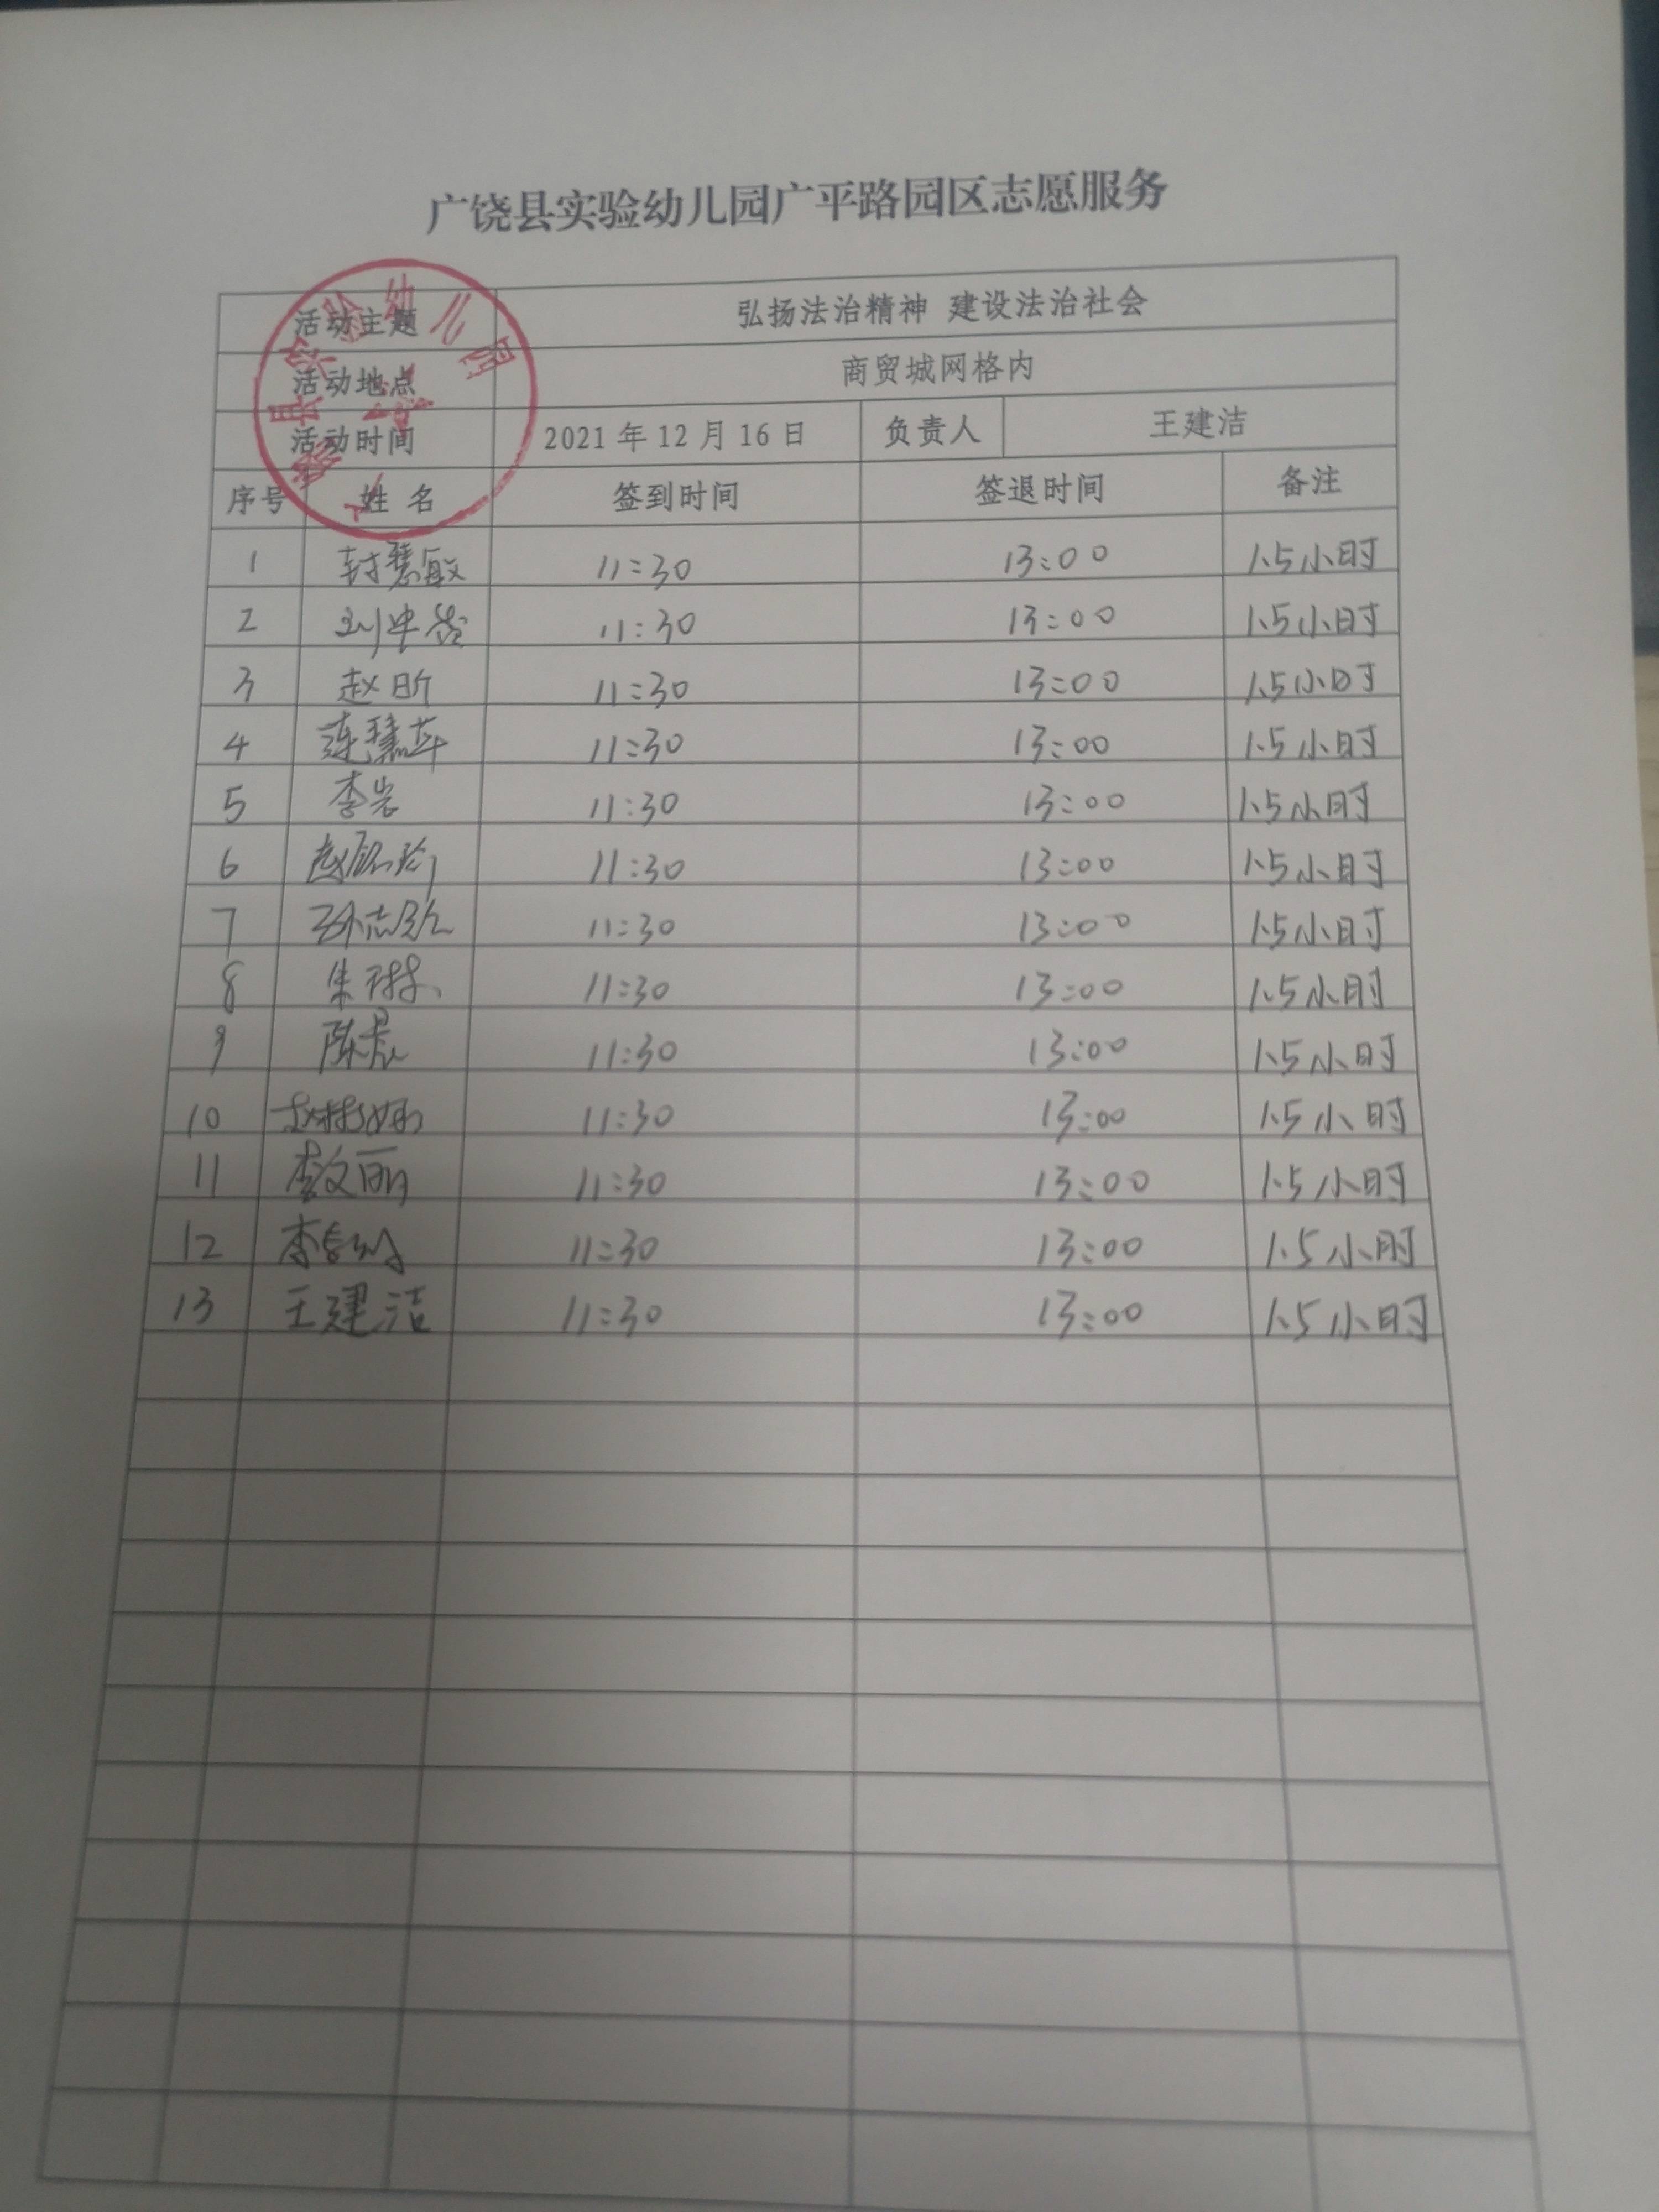 广饶县实验幼儿园广平路园区志愿服务
活动主题 弘扬法治精神 建设法治社会
活动地点 商贸城网格内
活动时间 2021年12月16日 负责人 王建洁
序号 姓名 签到时间 签退时间 备注
1 封慧敏 11:30 13:00 1.5小时
2 11:30 13:00 1.5小时
3 赵昕 11:30 13:00 1.5小时
4 连慧萍 11:30 13:00 1.5小时
5 李岩 11:30 13:00 1.5小时
6 11:30 13:00 1.5小时
7 11:30 13:00 1.5小时
8 朱琳 11:30 13:00 1.5小时
9 陈晨 11:30 13:00 1.5小时
10 11:30 13:00 1.5小时
11 李文丽 11:30 13:00 1.5小时
12 11:30 13:00 1.5小时
13 王建洁 11:30 13:00 1.5小时